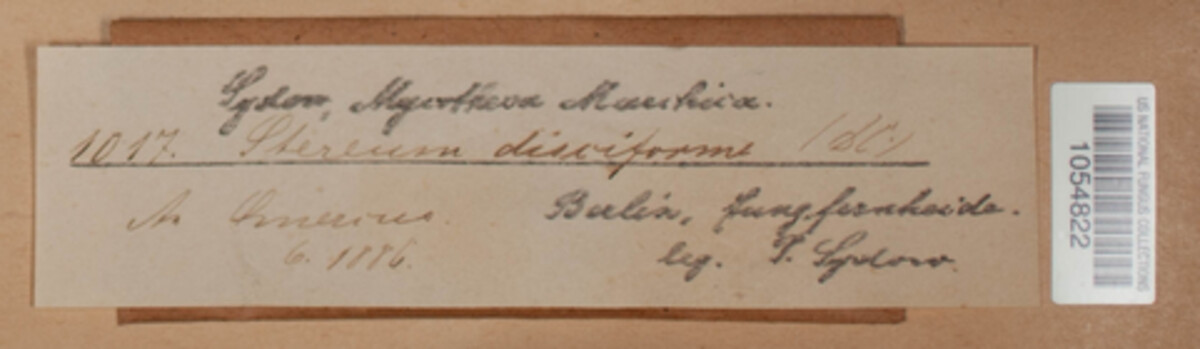 Sydow, Mycotheca Marchica.
1017. Stereum disciforme (DC.)
An Quercus.
6. 1886.
Berlin, Jungfernheide.
leg. P. Sydow.
US NATIONAL FUNGUS COLLECTIONS
1054822